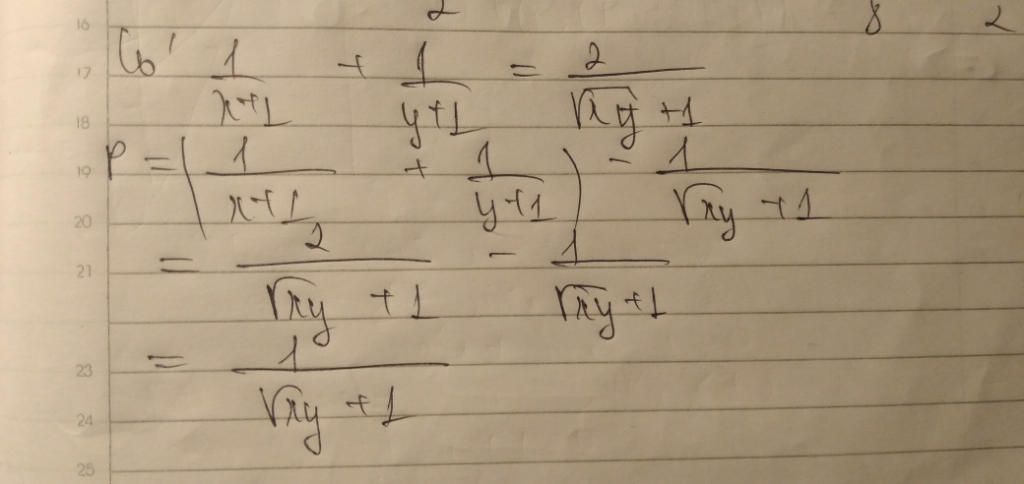 2 8 2
16
17 Có 1/(x+1) + 1/(y+1) = 2/(√xy +1)
18
19 P = (1/(x+1) + 1/(y+1)) - 1/(√xy +1)
20
21 = 2/(√xy +1) - 1/(√xy+1)
23 = 1/(√xy +1)
24
25